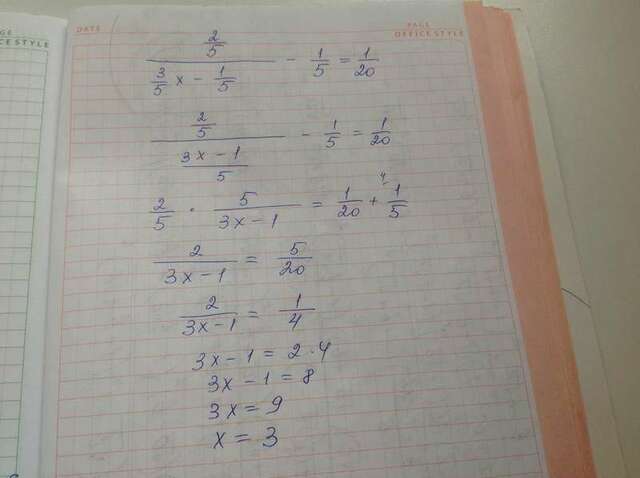 DATE PAGE
OFFICE STYLE
GE
CE STYLE
(2/5)/(3/5 x - 1/5) - 1/5 = 1/20
(2/5)/((3x - 1)/5) - 1/5 = 1/20
2/5 · 5/(3x - 1) = 1/20 + 1/5 4
2/(3x - 1) = 5/20
2/(3x - 1) = 1/4
3x - 1 = 2 · 4
3x - 1 = 8
3x = 9
x = 3